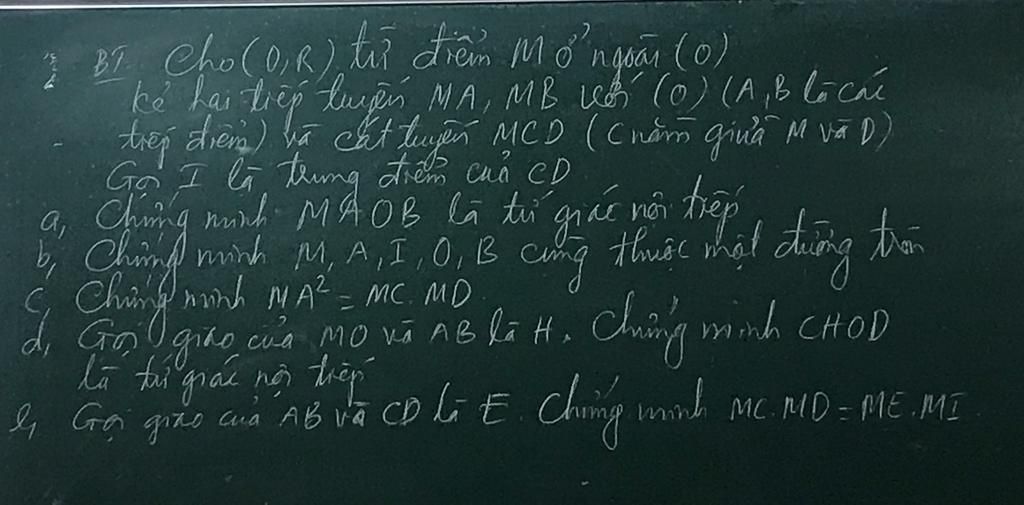 BT Cho (O,R) từ điểm M ở ngoài (O)
kẻ hai tiếp tuyến MA, MB với (O) (A,B là các
tiếp điểm) và cát tuyến MCD (C nằm giữa M và D)
Gọi I là trung điểm của CD
a, Chứng minh MAOB là tứ giác nội tiếp
b, Chứng minh M, A, I, O, B cùng thuộc một đường tròn
c, Chứng minh MA² = MC.MD.
d, Gọi giao của MO và AB là H. Chứng minh CHOD
là tứ giác nội tiếp
e, Gọi giao của AB và CD là E. Chứng minh MC.MD = ME.MI